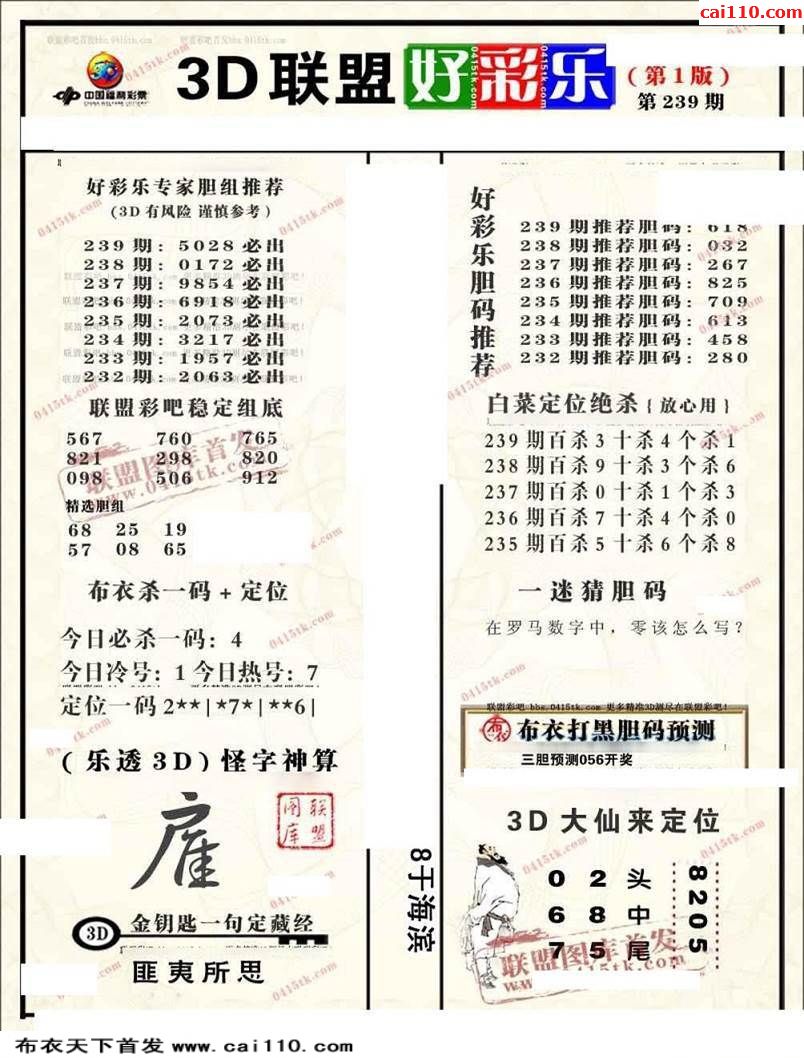 cai110.com
联盟彩吧首发bbs.0415tk.com
0415tk.com
中国福利彩票
CHINA WELFARE LOTTERY
3D联盟好彩乐
0415tk.com
0415tk.com
(第1版)
第239期
好彩乐专家胆组推荐
(3D有风险 谨慎参考)
239期: 5028必出
238期: 0172必出
237期: 9854必出
236期: 6918必出
235期: 2073必出
234期: 3217必出
233期: 1157必出
232期: 2063必出
联盟彩吧稳定组底
567 760 765
821 298 820
098 506 912
联盟图库首发
www.0415tk.com
精选胆组
68 25 19
57 08 65
布衣杀一码+定位
今日必杀一码: 4
今日冷号: 1 今日热号: 7
定位一码 2**|*7*|**6|
(乐透3D)怪字神算
雇
联盟图库
3D 金钥匙一句定藏经
匪夷所思
8于海滨
好彩乐胆码推荐
239期推荐胆码: 618
238期推荐胆码: 032
237期推荐胆码: 267
236期推荐胆码: 825
235期推荐胆码: 709
234期推荐胆码: 613
233期推荐胆码: 458
232期推荐胆码: 280
白菜定位绝杀{放心用}
239期百杀3十杀4个杀1
238期百杀9十杀3个杀6
237期百杀0十杀1个杀3
236期百杀7十杀4个杀0
235期百杀5十杀6个杀8
一迷猜胆码
在罗马数字中，零该怎么写?
联盟彩吧 bbs.0415tk.com 更多精准3D谜尽在联盟彩吧!
布衣 布衣打黑胆码预测
三胆预测056开奖
3D大仙来定位
0 2 头
6 8 中
7 5 尾
8205
联盟图库首发
布衣天下首发 www.cai110.com